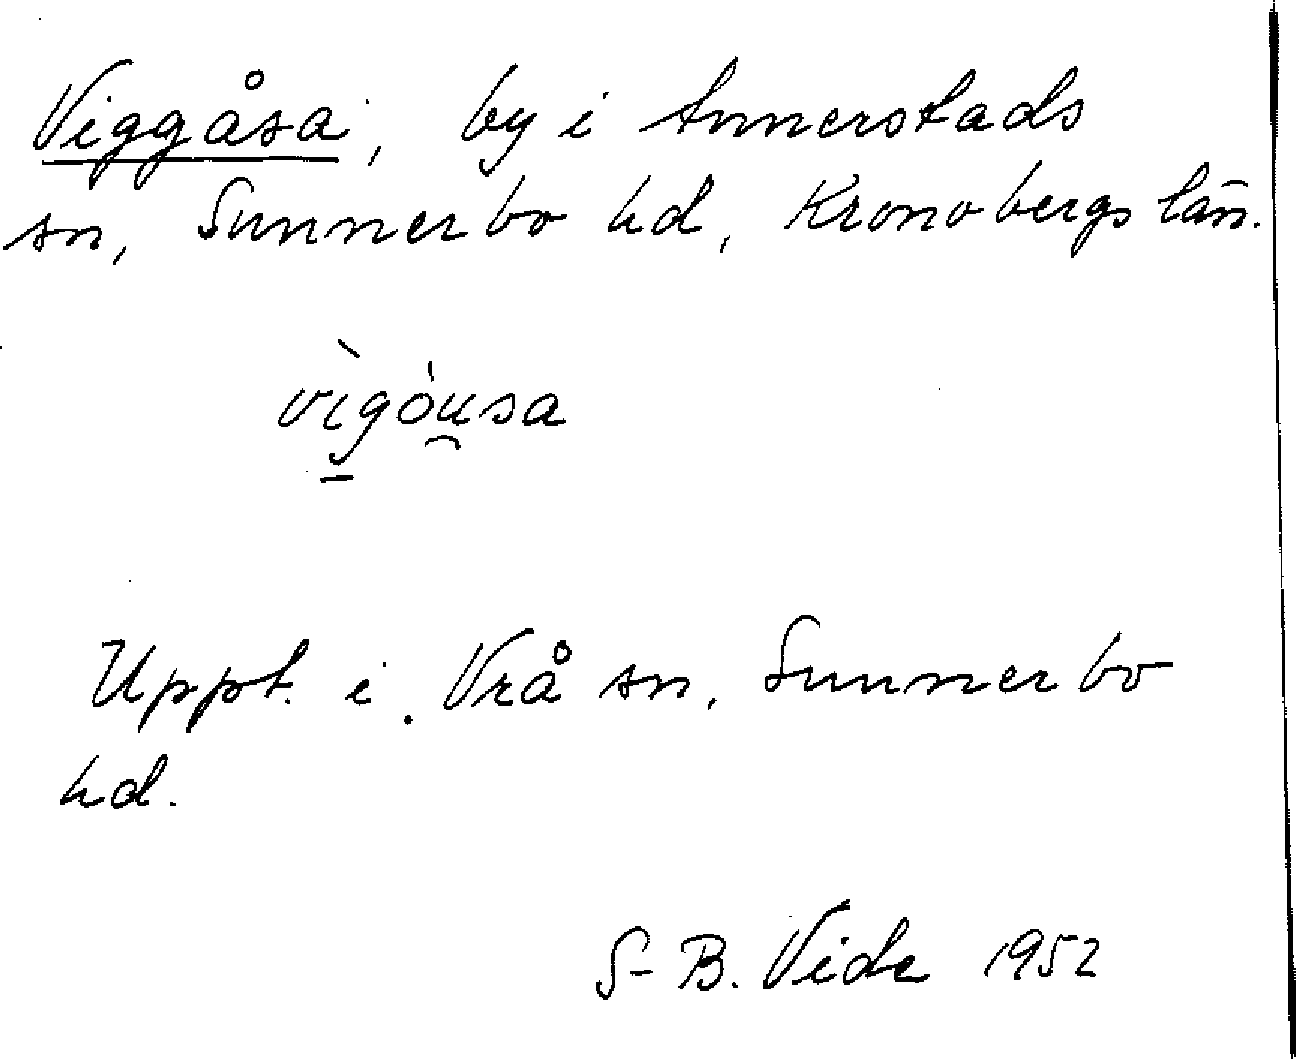 Viggåsa, by i Annerstads
sn, Sunnerbo hd, Kronobergs län.
vìg̱óu̯sa
Uppt. i Vrå sn, Sunnerbo
hd.
S-B. Vide 1952